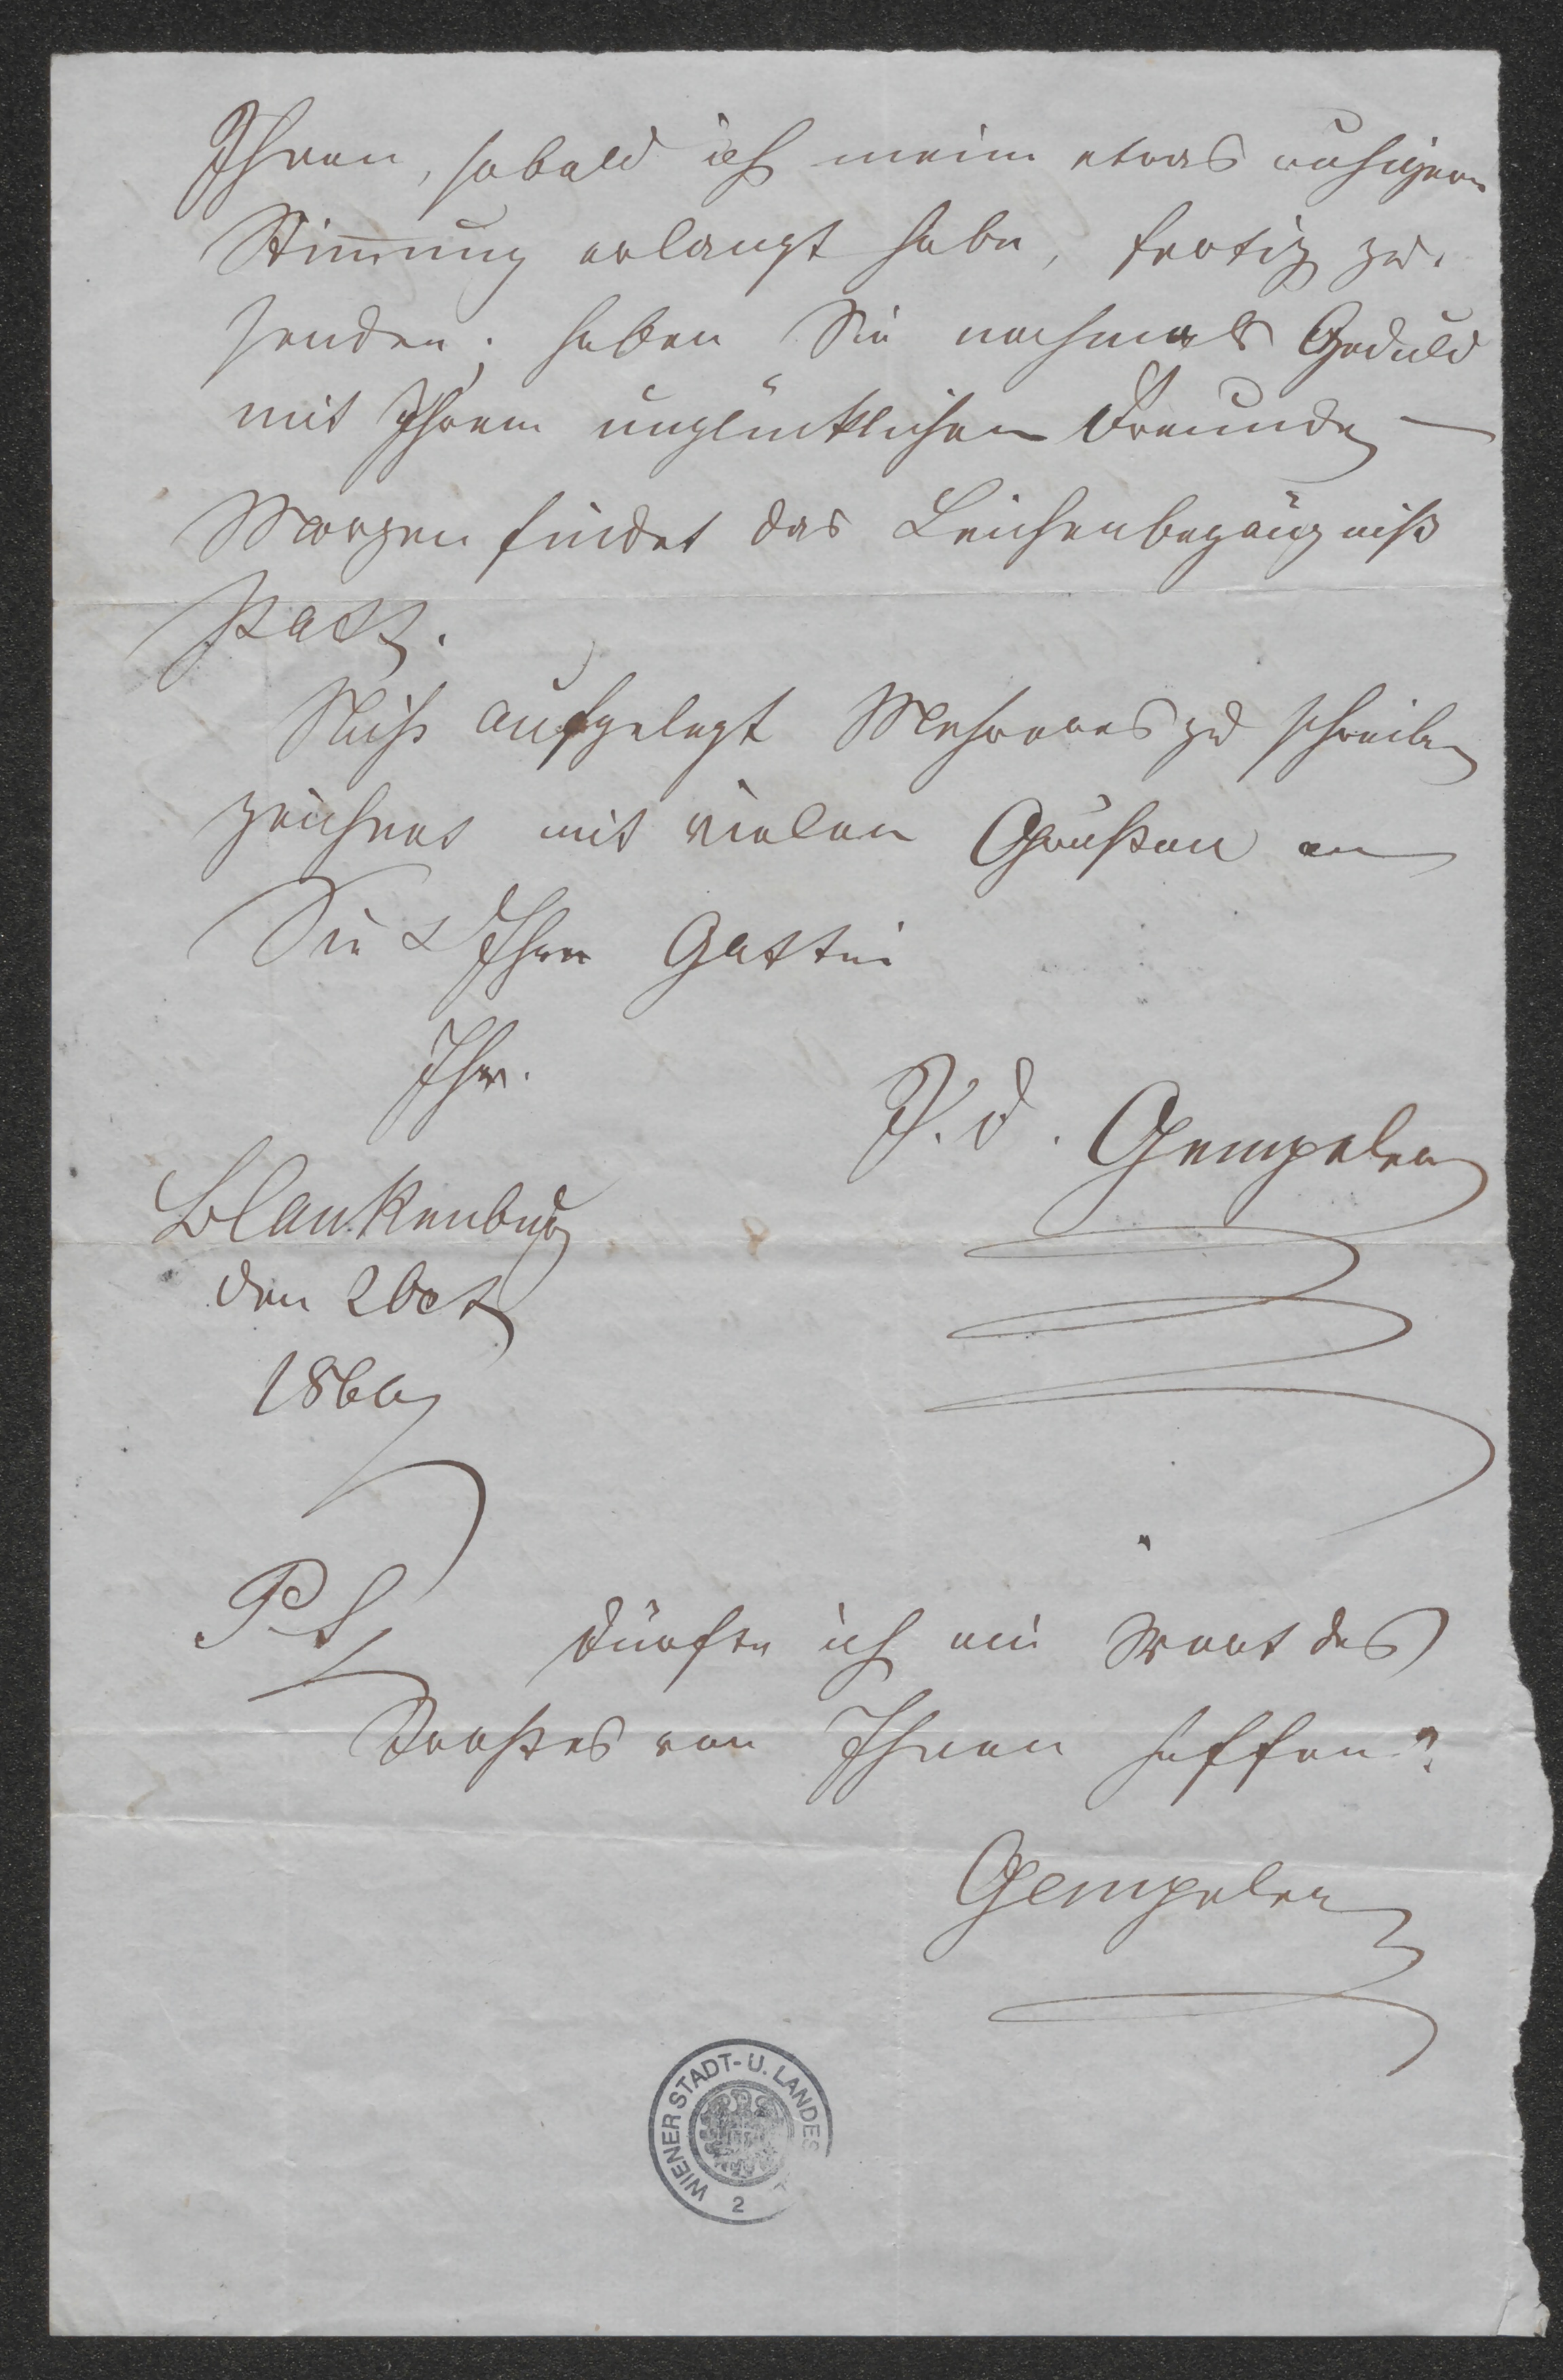 Ihnen, sobald ich meine etwas ruhigere
Stimmung erlangt habe, fertig zu
senden; haben Sie nochmals Geduld
mit Ihrem unglücklichen Freunde —
Morgen findet das Leichenbegängniß
statt.
Nicht aufgelegt Mehreres zu schreiben
zeichnet mit vielen Grüßen an
Sie & Ihre Gattin
Ihr.
J. D. Gempeler
Blankenburg
den 2 Oct
1866
P.S. Dürfte ich ein Wort des
Trostes von Ihnen hoffen?
Gempeler
WIENER STADT- U. LANDES
2